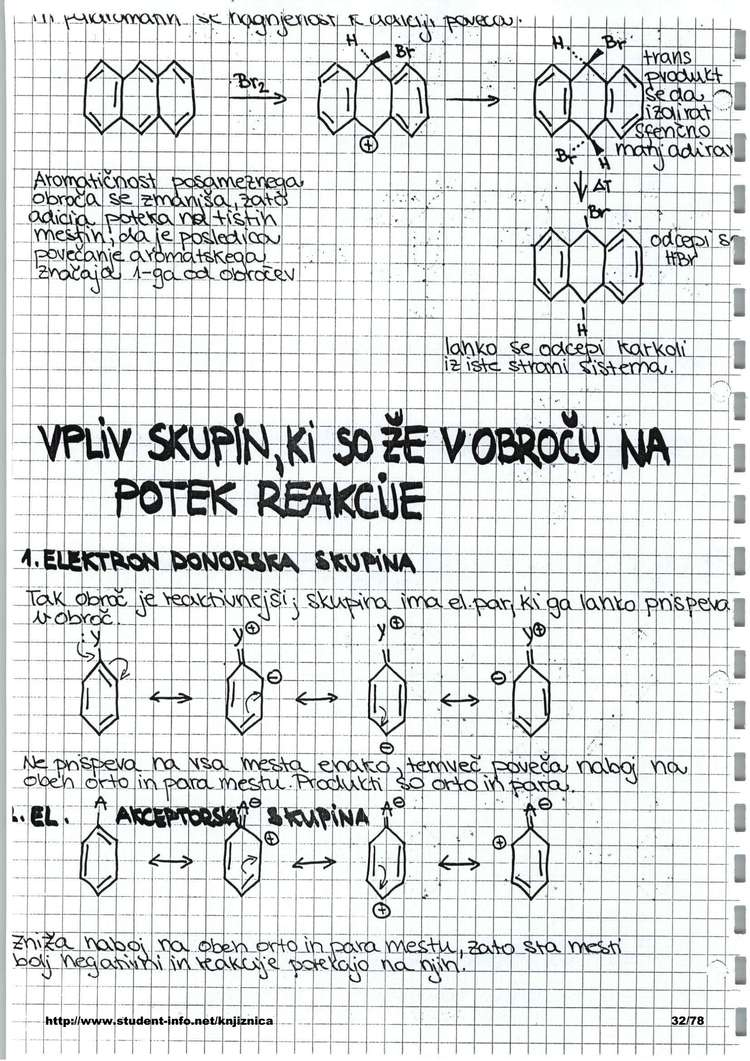 se nagnjenost k adiciji poveča.
H
Br
H
Br
Br₂
⊕
Br
H
trans
produkt
se da
izolirat
sferično
manj adiran
ΔT
Br
H
odcepi se
HBr
Aromatičnost posameznega
obroča se zmanjša, zato
adicija poteka na tistih
mestih, da je posledica
povečanje aromatskega
značaja 1-ga od obročev
lahko se odcepi karkoli
iz iste strani sistema.
VPLIV SKUPIN, KI SO ŽE V OBROČU NA
POTEK REAKCIJE
1. ELEKTRON DONORSKA SKUPINA
Tak obroč je reaktivnejši; skupina ima el. par, ki ga lahko prispeva
v obroč.
:Y
Y⊕
Y⊕
Y⊕
⊖
⊖
⊖
Ne prispeva na vsa mesta enako, temveč poveča naboj na
obeh orto in para mestu. Produkti so orto in para.
EL. AKCEPTORSKA SKUPINA
A
A⊖
A⊖
A⊖
⊕
⊕
⊕
Zniža naboj na obeh orto in para mestu, zato sta mesti
bolj negativni in reakcije potekajo na njih.
http://www.student-info.net/knjiznica
32/78